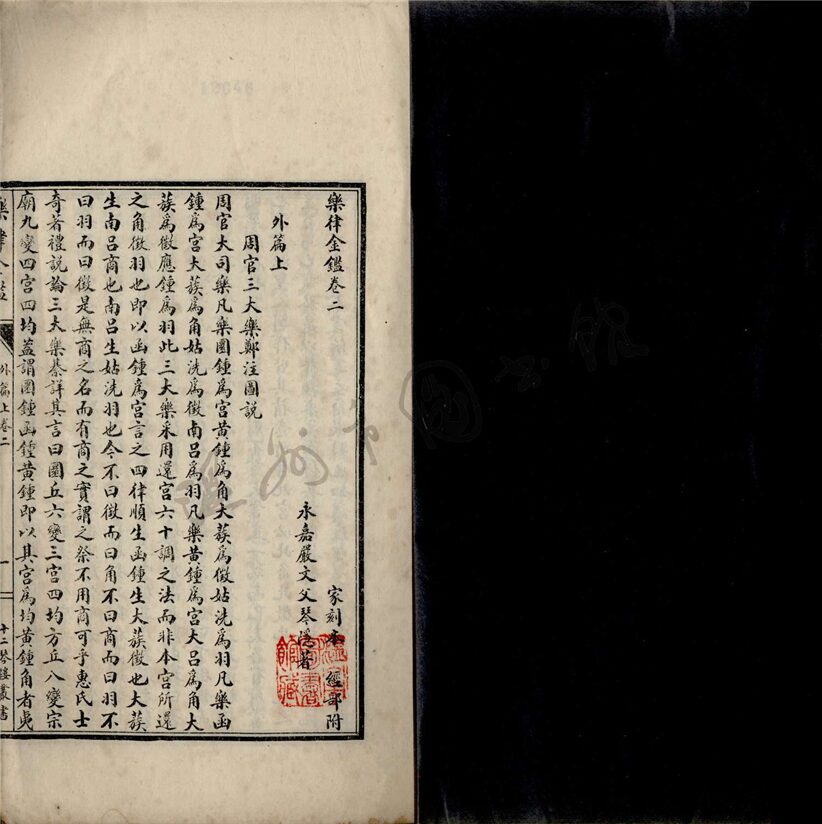 樂律金鑑卷二
家刻本 經部附
永嘉嚴文父琴隱著
外篇上
周官三大樂鄭注圖說
周官大司樂凡樂圜鍾爲宮黃鍾爲角大蔟爲徵姑洗爲羽凡樂函
鍾爲宮大蔟爲角姑洗爲徵南呂爲羽凡樂黃鍾爲宮大呂爲角大
蔟爲徵應鍾爲羽此三大樂采用還宮六十調之法而非本宮所還
之角徵羽也即以函鍾爲宮言之四律順生函鍾生大蔟徵也大蔟
生南呂商也南呂生姑洗羽也今不曰徵而曰角不曰商而曰羽不
曰羽而曰徵是無商之名而有商之實謂之祭不用商可乎惠氏士
奇著禮說論三大樂綦詳其言曰圜丘六變三宮四均方丘八變宗
廟九變四宮四均蓋謂圜鍾函鍾黃鍾即以其宮爲均黃鍾角者夷
樂律金鑑
外篇上卷二
一
十二琴樓叢書
溫州市圖書館
12646